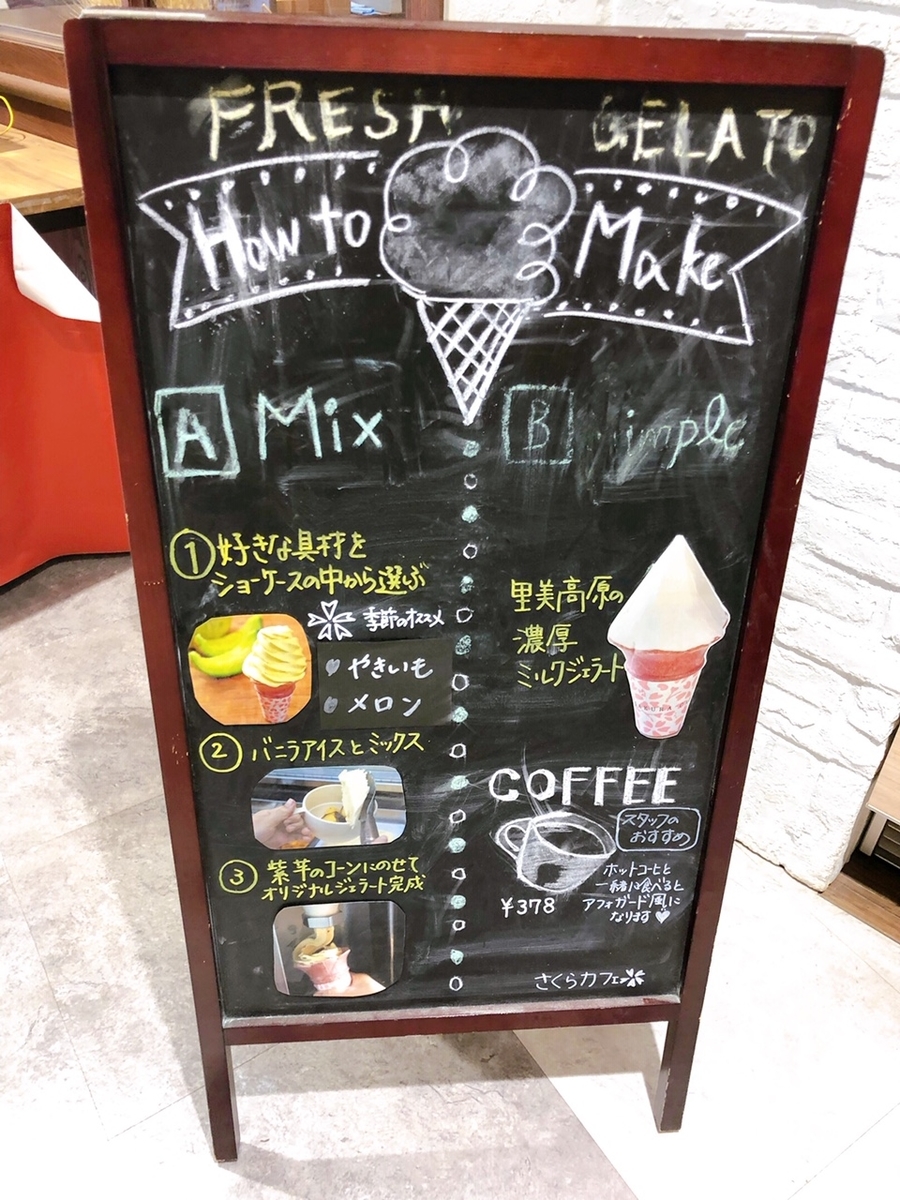 FRESH GELATO
How to Make
A Mix
① 好きな具材を
ショーケースの中から選ぶ
季節のオススメ
やきいも
メロン
② バニラアイスとミックス
③ 紫芋のコーンにのせて
オリジナルジェラート完成
B imple
里美高原の
濃厚
ミルクジェラート
SAKURA
COFFEE
スタッフの
おすすめ
¥378
ホットコーヒーと
一緒に食べると
アフォガード風に
なります
さくらカフェ